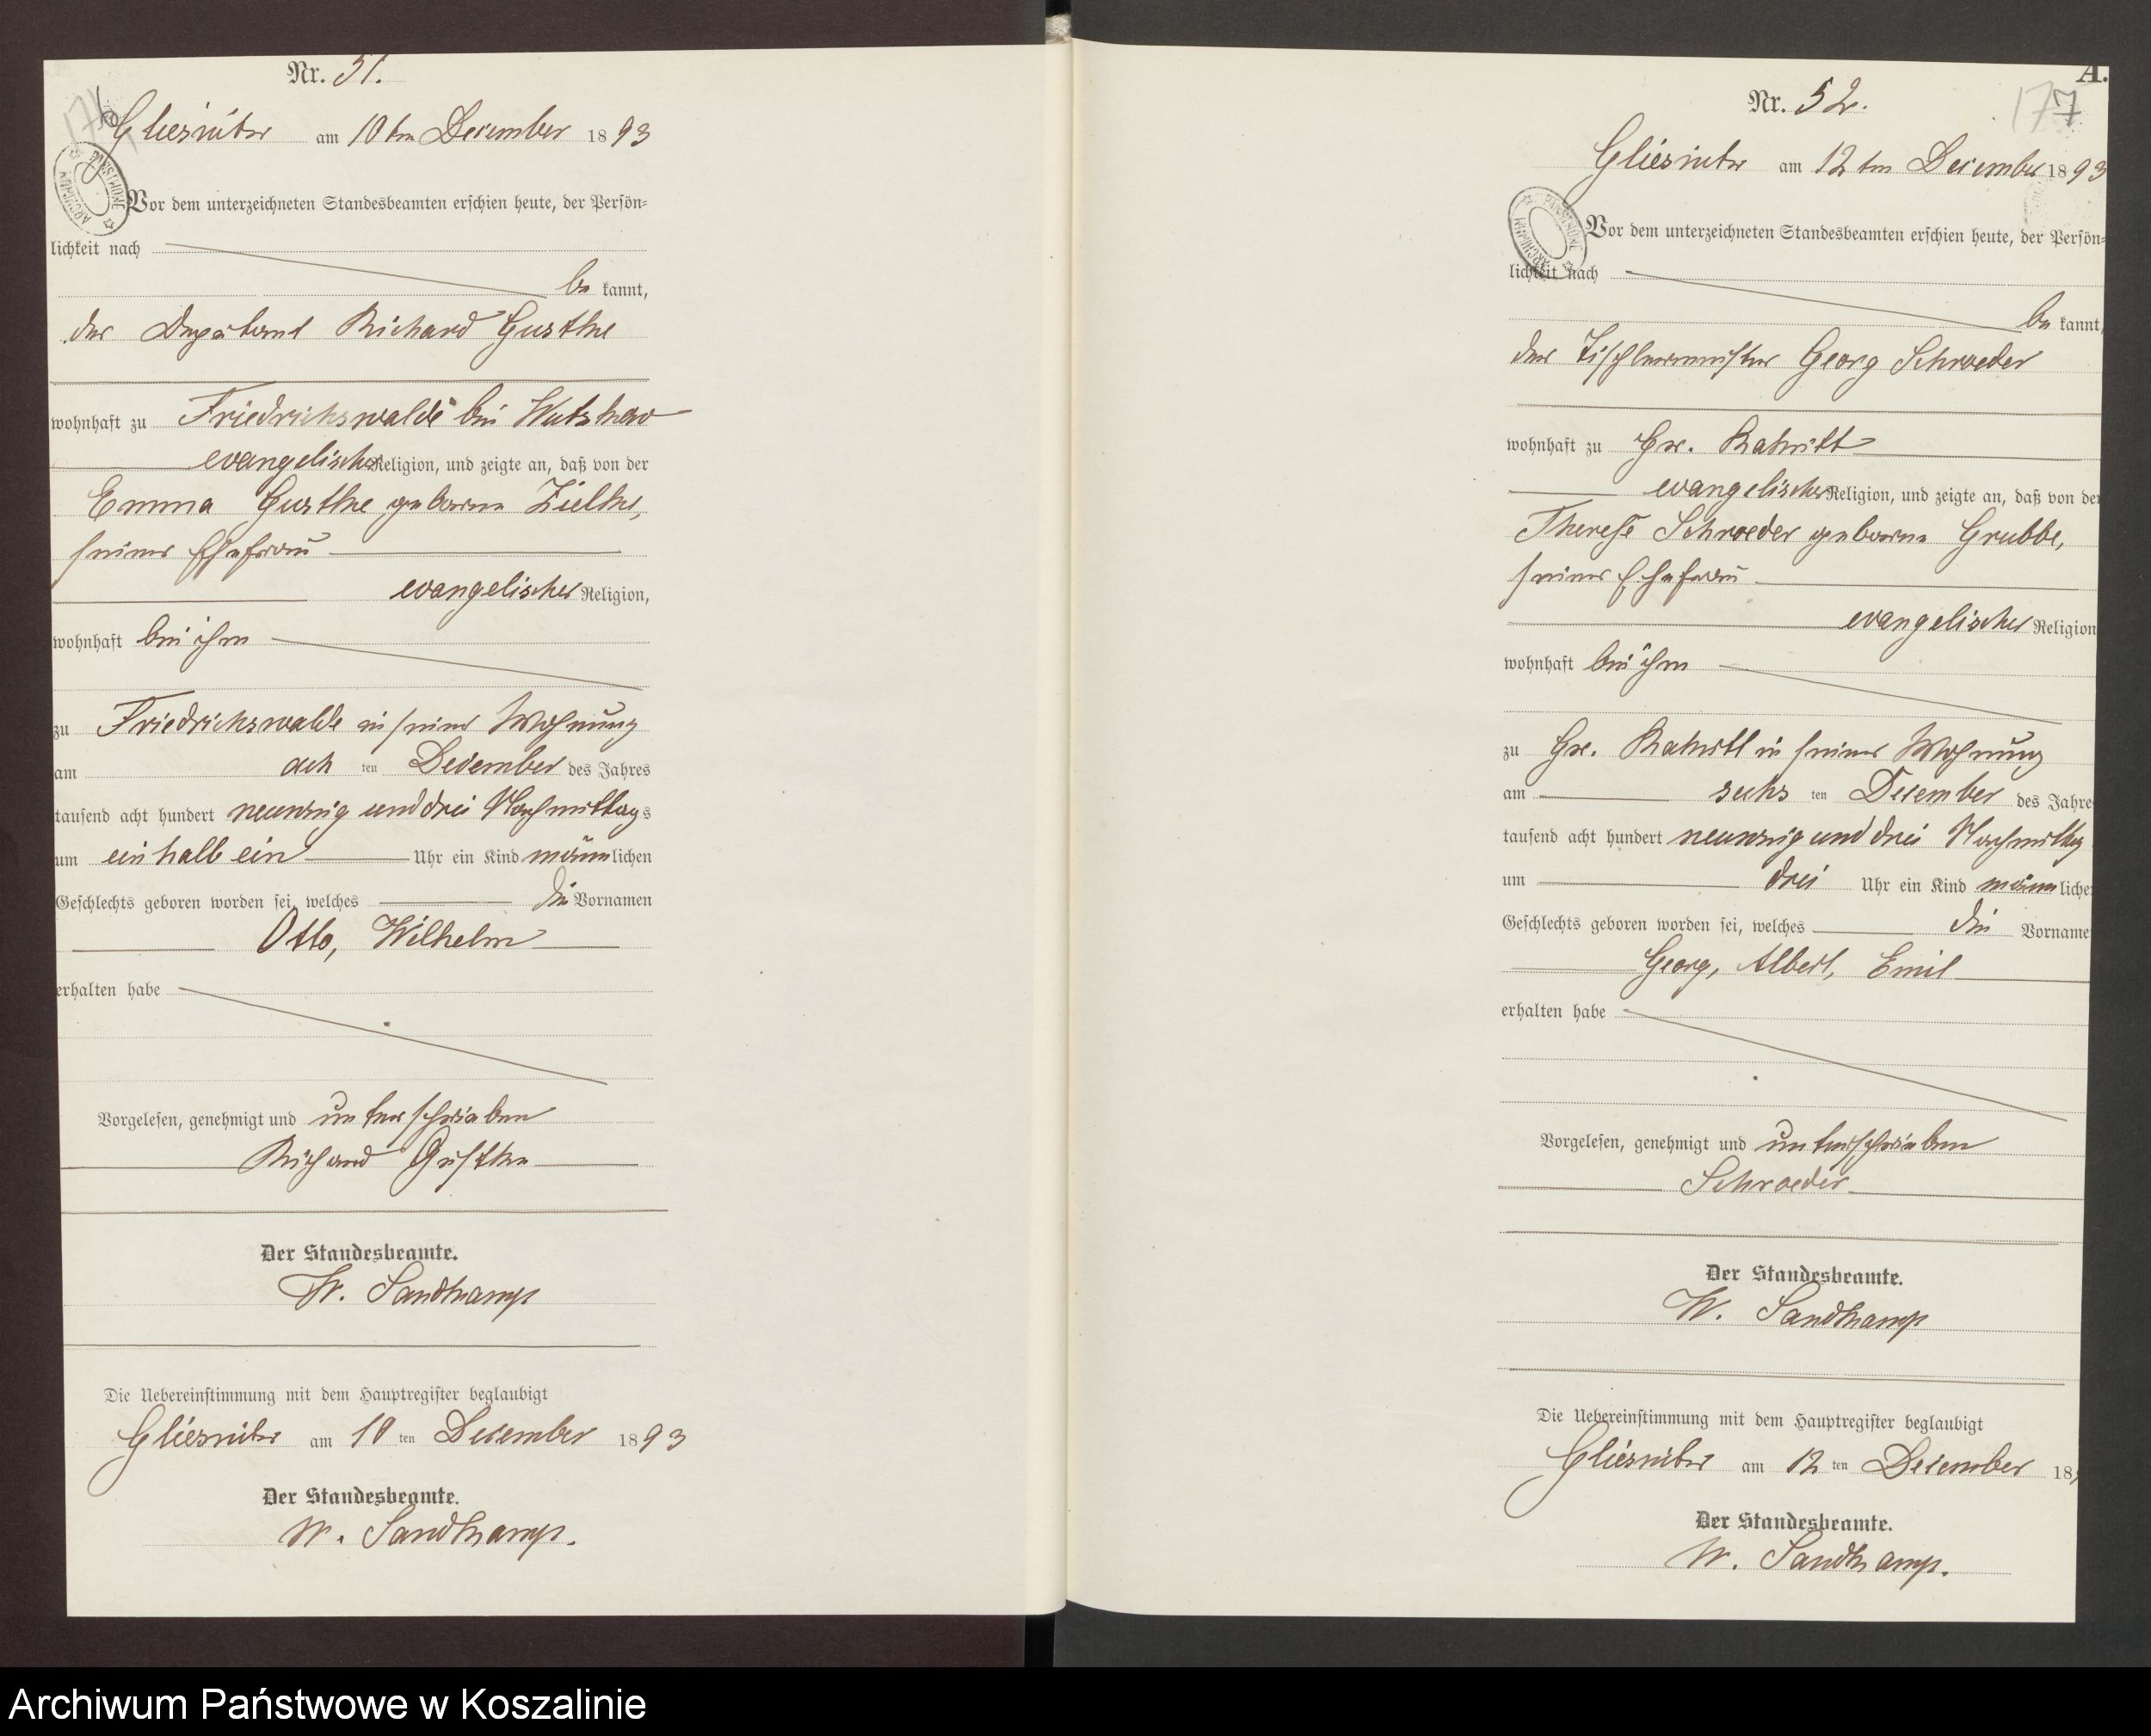 Nr. 51.
Gliesnitz am 10ten December 1893
Vor dem unterzeichneten Standesbeamten erschien heute, der Persön-
lichkeit nach
be kannt,
der Deputant Richard Gusthe
wohnhaft zu Friedrichswalde bei Wutzkow
evangelischer Religion, und zeigte an, daß von der
Emma Gusthe geborne Zielke,
seiner Ehefrau
evangelischer Religion,
wohnhaft bei ihm
zu Friedrichswalde in seiner Wohnung
am ach ten December des Jahres
tausend acht hundert neunzig und drei Nachmittags
um ein halb ein Uhr ein Kind männlichen
Geschlechts geboren worden sei, welches die Vornamen
Otto, Wilhelm
erhalten habe
Vorgelesen, genehmigt und unterschrieben
Richard Gusthe
Der Standesbeamte.
W. Sandkamp
Die Uebereinstimmung mit dem Hauptregister beglaubigt
Gliesnitz am 10 ten December 1893
Der Standesbeamte.
W. Sandkamp.
A.
177
Nr. 52.
Gliesnitz am 12ten December 1893
Vor dem unterzeichneten Standesbeamten erschien heute, der Persön-
lichkeit nach
be kannt,
der Tischlermeister Georg Schroeder
wohnhaft zu Gr. Rakitt
evangelischer Religion, und zeigte an, daß von der
Therese Schroeder geborne Grubbe,
seiner Ehefrau
evangelischer Religion
wohnhaft bei ihm
zu Gr. Rakitt in seiner Wohnung
am sechs ten December des Jahre
tausend acht hundert neunzig und drei Nachmittag
um drei Uhr ein Kind männliche
Geschlechts geboren worden sei, welches die Vorname
Georg, Albert, Emil
erhalten habe
Vorgelesen, genehmigt und unterschrieben
Schroeder
Der Standesbeamte.
W. Sandkamp
Die Uebereinstimmung mit dem Hauptregister beglaubigt
Gliesnitz am 12 ten December 18
Der Standesbeamte.
W. Sandkamp.
Archiwum Państwowe w Koszalinie